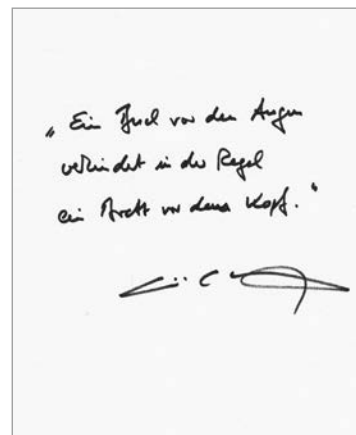 „Ein Buch vor den Augen
verhindert in der Regel
ein Brett vor dem Kopf.“